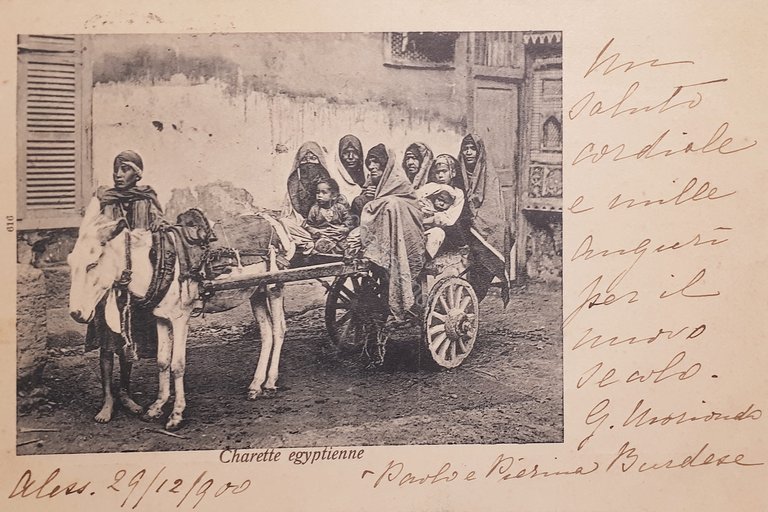 616
Charette egyptienne
Un
saluto
cordiale
e mille
auguri
per il
nuovo
secolo.
G. Moriondo
Paolo e Pierina Burdese
Aless. 29/12/900